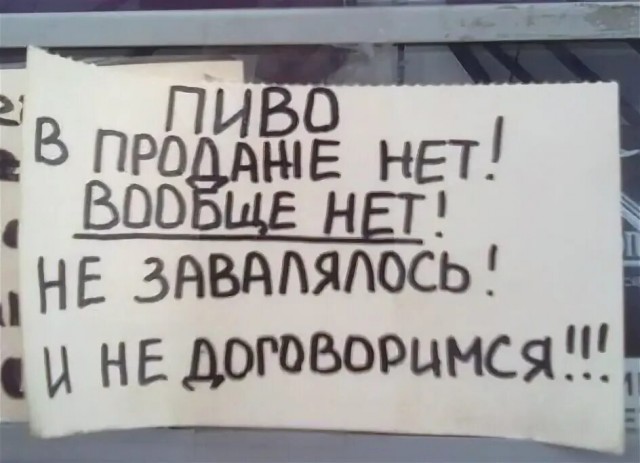 ПИВО
В ПРОДАЖЕ НЕТ!
ВООБЩЕ НЕТ!
НЕ ЗАВАЛЯЛОСЬ!
И НЕ ДОГОВОРИМСЯ!!!